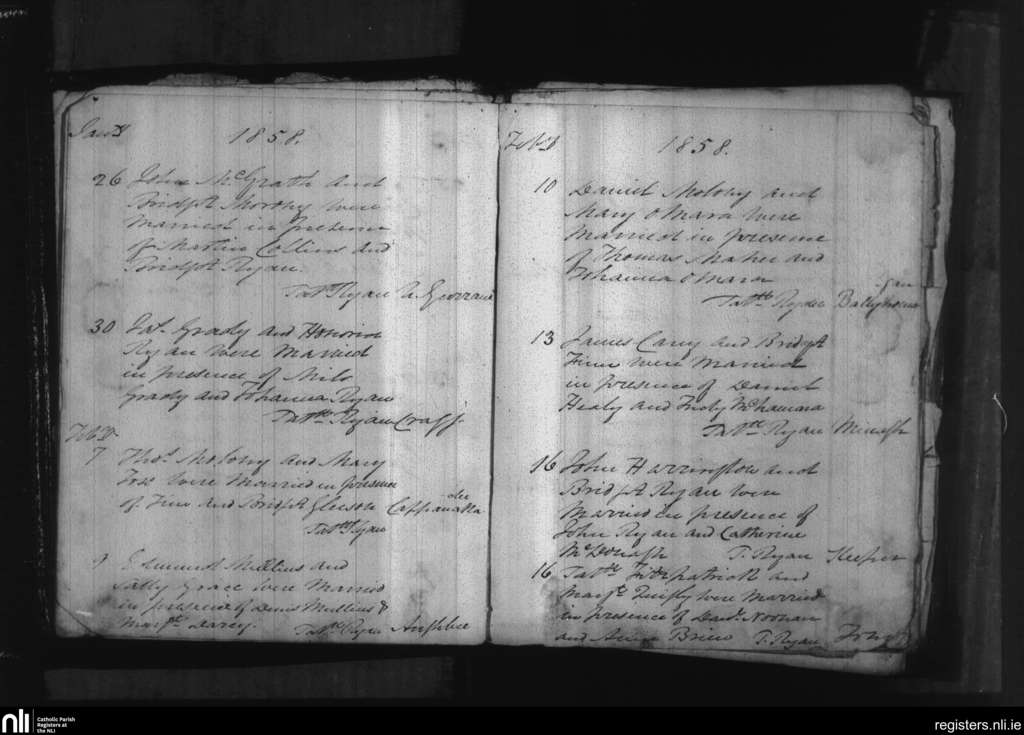 Jany
1858.
26 John McGrath and
Bridgt were
married in presence
of Martin Collins and
Bridgt Ryan.
Patk Ryan
30 Grady and Honoria
Ryan were Married
in presence of
Grady and Johanna Ryan
Pattk Ryan
Feby
7 Thos. Molony and Mary
were Married in presence
of Tim and Bridgt Gleeson
Pattk Ryan
9 Edmund Mullins and
Sally Grace were Married
in presence of Denis Mullins &
Margt Darcy. Pattk Ryan
Feby
1858.
10 Daniel Molony and
Mary OMara were
Married in presence
of Thomas Maher and
Johanna OMara
Pattk Ryan
13 James Carey and Bridgt
were Married
in presence of Daniel
Healy and McNamara
Pattk Ryan
16 John Harrington and
Bridgt Ryan were
Married in presence of
John Ryan and Catherine
McDonagh T. Ryan Keeper
16 Pattk Fitzpatrick and
Margt Quifty were Married
in presence of Danl. Noonan
and Brien T. Ryan
nli
Catholic Parish
Registers at
the NLI
registers.nli.ie